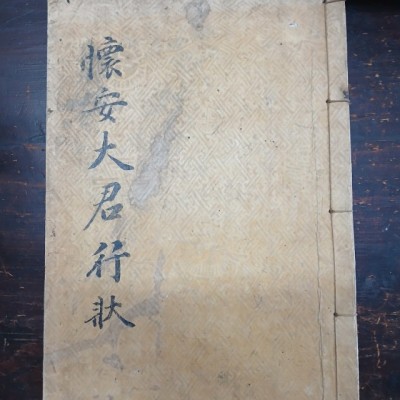 懷安大君行狀